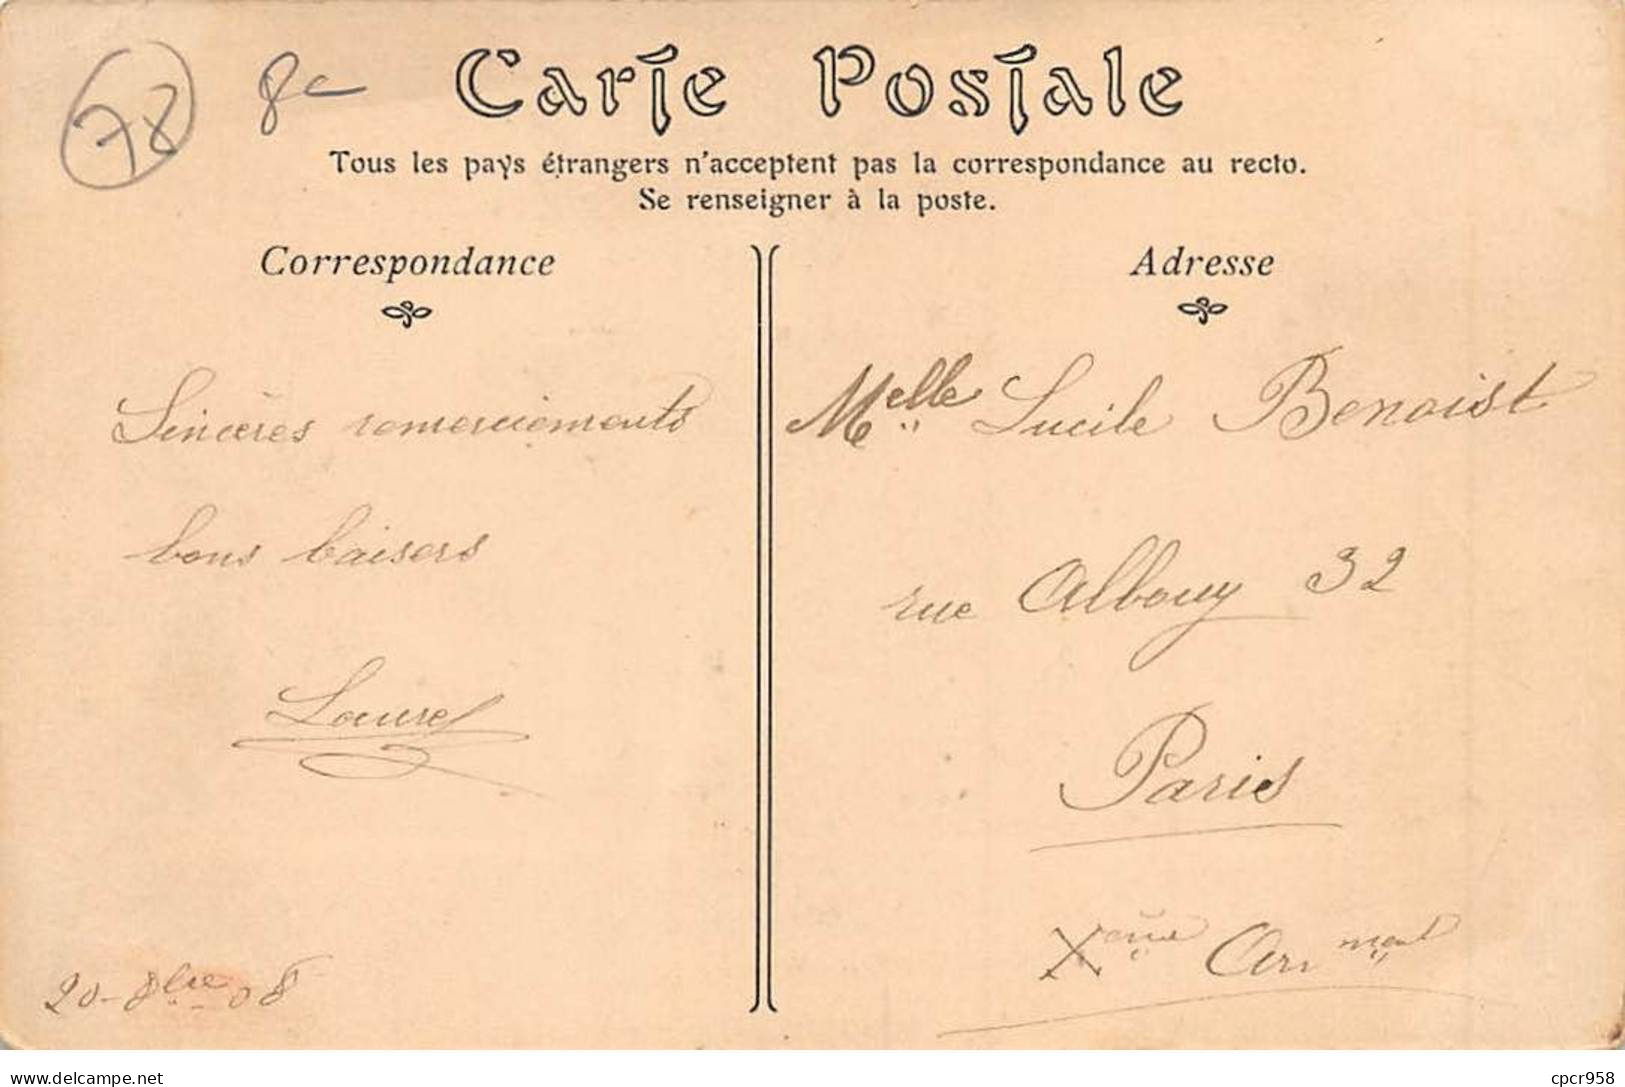 78 8c
Carte Postale
Tous les pays étrangers n'acceptent pas la correspondance au recto.
Se renseigner à la poste.
Correspondance
Sincères remerciements
bons baisers
Laure
20-8bre-08
Adresse
Melle Lucile Benoist
rue Albouy 32
Paris
Xème Arrment
delcampe.net
cpcr958